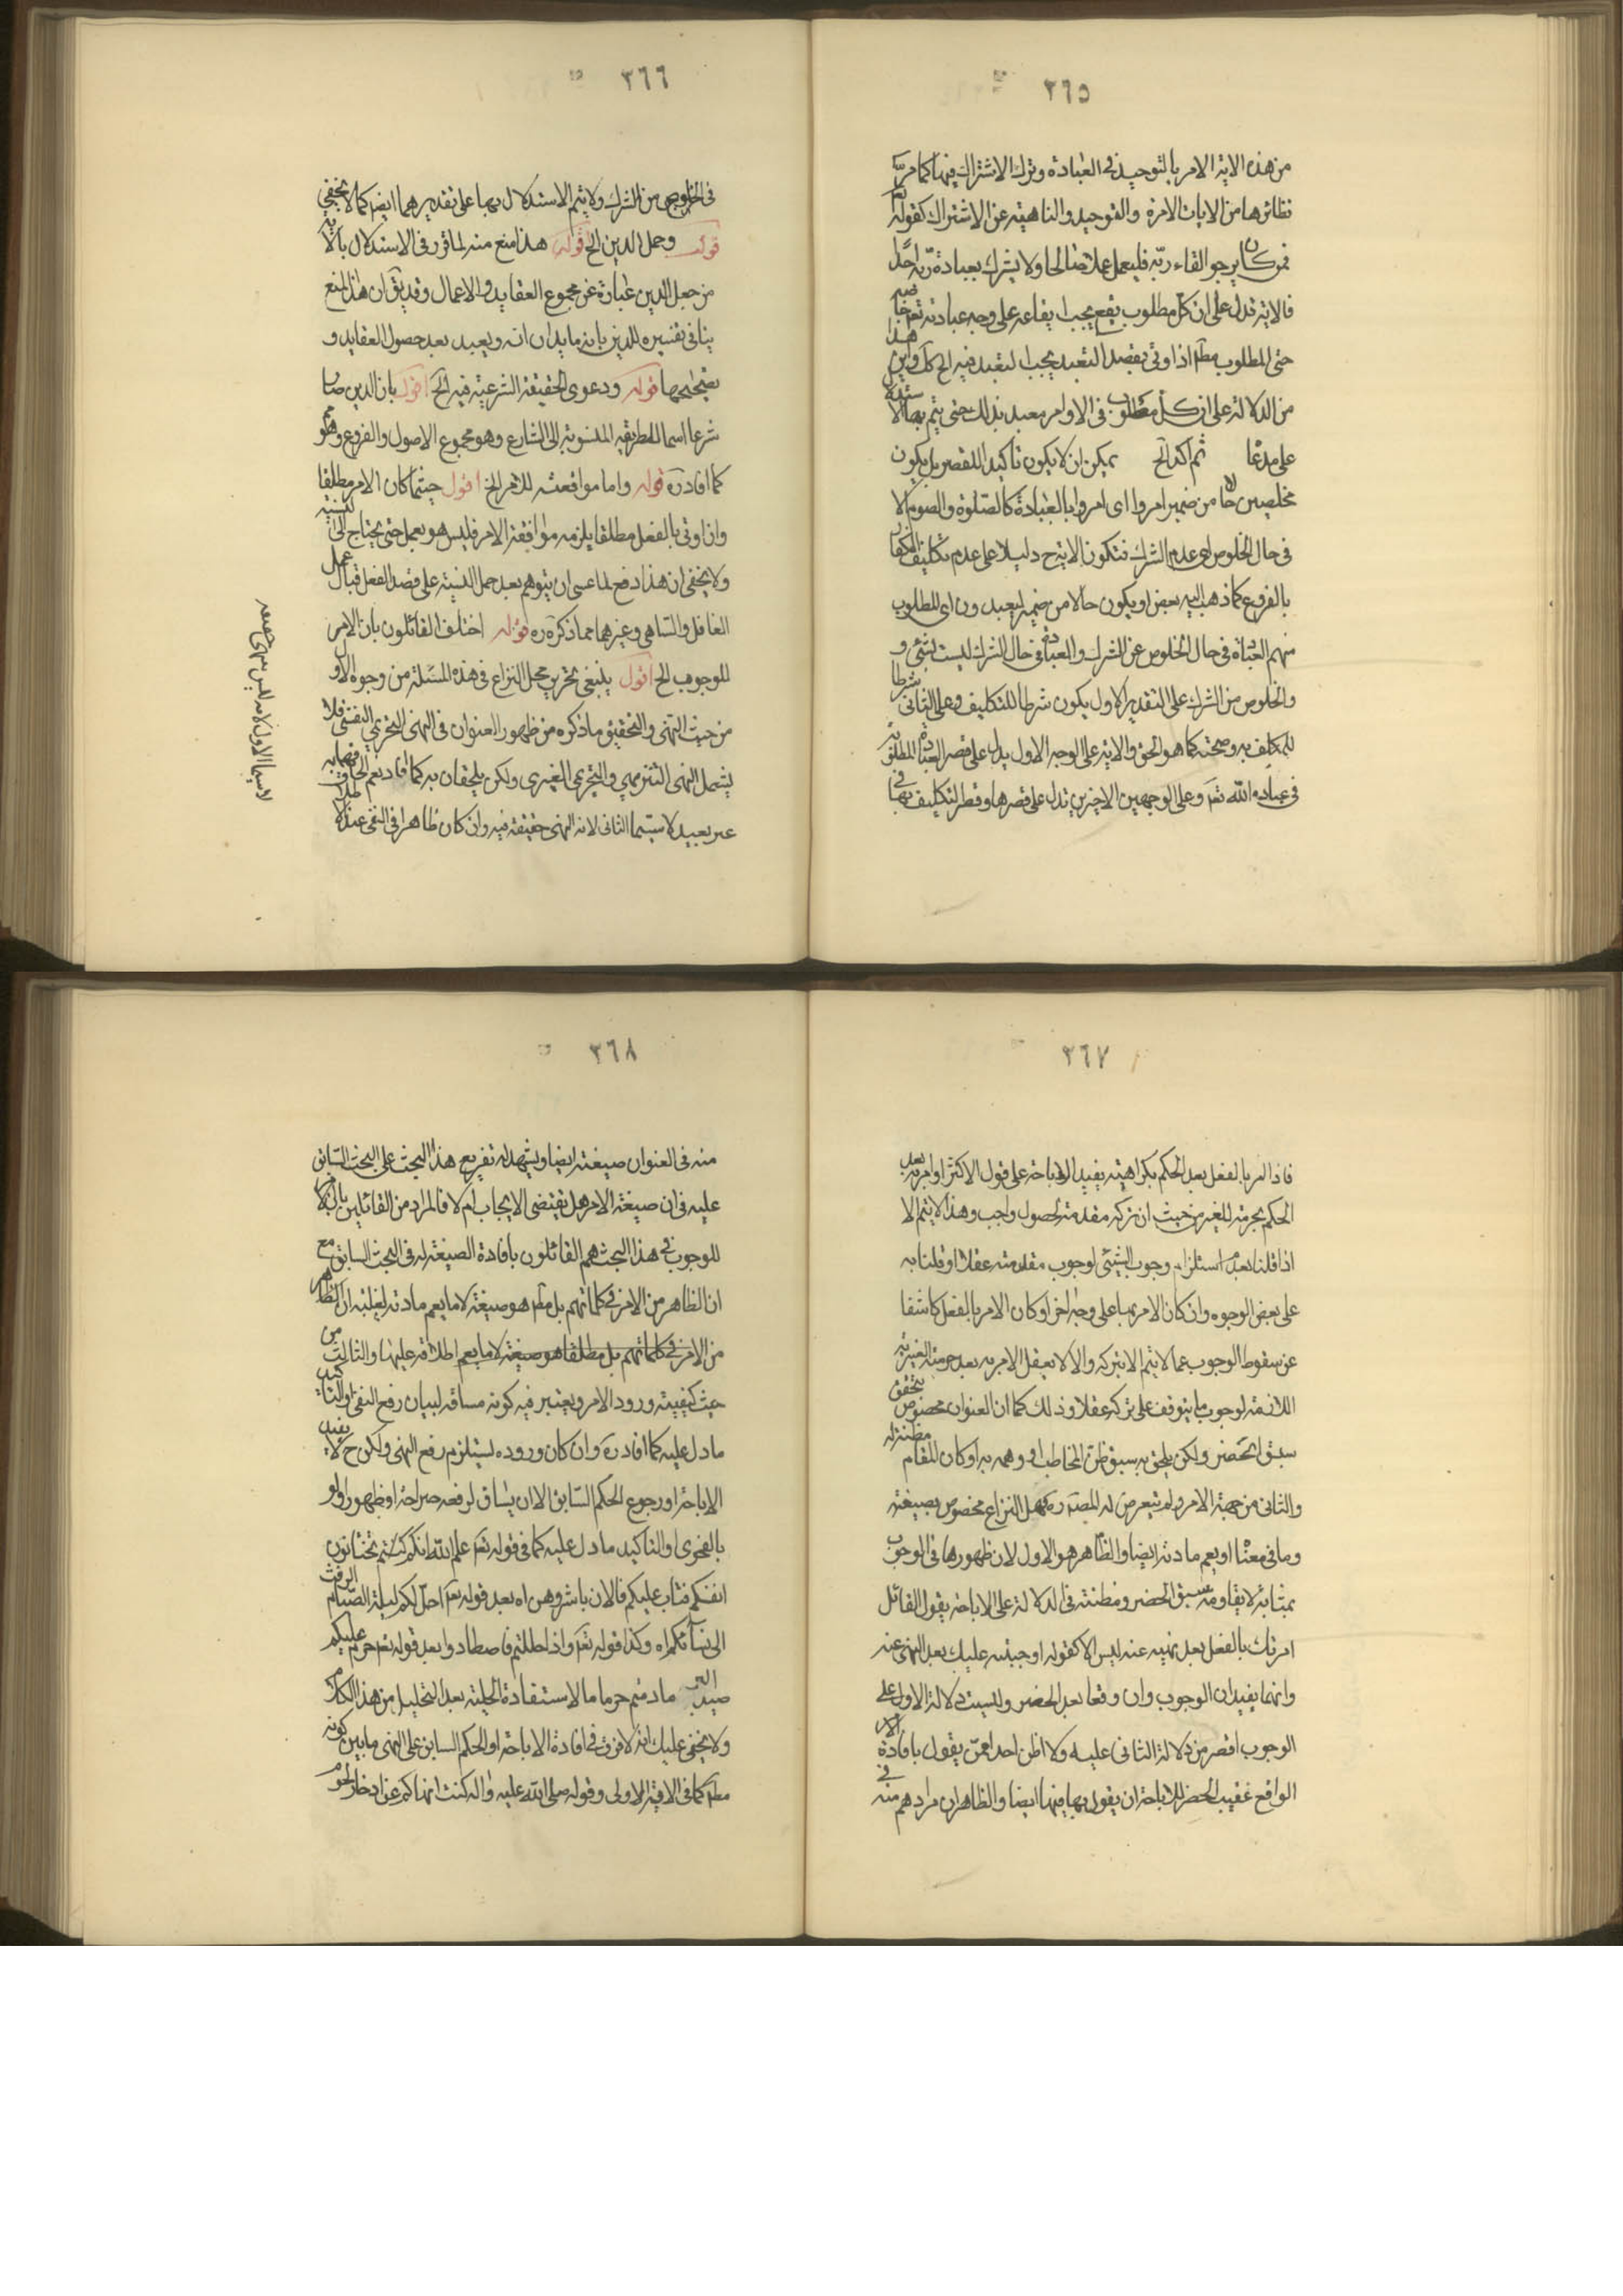 ٣٦٥
من هذه الاية الامر بالتوحيد فى العبادة وترك الاشتراك فيها كما مر فى
نظائرها من الايات الامرة والتوحيد والناهية عن الاشتراك كقوله تع
فمن كان يرجو القاء ربه فليعمل عملا صالحا ولا يشرك بعبادة ربه احدا
فالاية تدل على ان كل مطلوب يقع يجب ايقاعه على وجه عبادته تع خاصة
حتى المطلوب مطم اذا اوتى بقصد التعبد يجب التعبد فيه الخ كك واين هذا
من الدلالة على ان كل مطلوب فى الاوامر معبد بذلك حتى يتم بها الاستدلال
على مدعا ثم اكد الخ يمكن ان لا يكون تاكيدا للقصر بل يكون
مخلصين حالا من ضمير امروا اى امروا بالعبادة كالصلوة والصوم الا
فى حال الخلوص اى عدم الشرك فتكون الاية ح دليلا على عدم تكليف الكفار
بالفروع كما ذهب اليه بعض او يكون حالا من ضمير ليعبدون اى المطلوب
منهم العبادة فى حال الخلوص عن الشرك والعبادة فى حال الشرك ليست بشئ و
والخلوص من الشرك على التقدير الاول يكون شرطا للتكليف وعلى الثانى شرطا
للمكلف به وصحته كما هو الحق والاية على الوجه الاول يدل على قصر العبادة المطلوبة
فى عبادة الله تع وعلى الوجهين الاخيرين تدل على قصرها وقصر التكليف بها فى
٣٦٦
فى الخلوص من الشرك ولا يتم الاستدلال بها على تقديرهما ايضا كما لا يخفى
قوله وحمل الدين الخ قوله هذا منع منه لما قرر فى الاستدلال بالاية
من جعل الدين عبارة عن مجموع العقايد والاعمال وقد يق ان هذا المنع
ينافى تفسيره للدين بانه ما يدان به ويعبد بعد حصول العقايد و
تصحيحها قوله ودعوى الحقيقة الشرعية فيه الخ اقول بان الدين صار
شرعا اسما للطريقة المنسوبة الى الشارع وهو مجموع الاصول والفروع وهم
كما افاد ره قوله واما موافقته للامر الخ اقول حيثما كان الامر مطلقا
وان اوتى بالفعل مطلقا يلزمه موافقة الامر فليس هو بعمل حتى يحتاج الى النية
ولا يخفى ان هذا دفع لما عسى ان يتوهم بعد حمل النية على قصد الفعل قبال عمل
الغافل والساهى وغيرهما مما ذكره ره قوله اختلف القائلون بان الامر
للوجوب الخ اقول ينبغى تحرير محل النزاع فى هذه المسئلة من وجوه الاول
من حيث النهى والتحقيق ما ذكره من ظهور العنوان فى النهى التحريمى النفسى فلا
يشمل النهى التنزيهى والتحريمى الغيرى ولكن يلحقان به كما افاد نعم الحاقهما به
غير بعيد لا سيما الثانى لانه النهى حقيقة فيه وان كان ظاهرا فى النفى عند الاطلاق
لا سيما الاول لانه ليس بنهى حقيقة
٣٦٧
فاذا امر بالفعل بعد الحكم بكراهيته يفيد الاباحة على قول الاكثر او امر به بعد
الحكم بحرمته للغير من حيث ان تركه مقدمة لحصول واجب وهذا لا يتم الا
اذا قلنا بعدم استلزام وجوب الشيئ لوجوب مقدمته عقلا او قلنا به
على بعض الوجوه وان كان الامر بها على وجه اخر او كان الامر بالفعل كاشفا
عن سقوط الوجوب عما لا يتم الا بتركه والا لا يعقل الامر به بعد حرمته الغيرية
اللازمة لوجوب ما يتوقف على تركه عقلا وذلك كما ان العنوان مخصوص بتحقق
سبق الحضر ولكن يلحق به سبق ظن المخاطب او وهمه به او كان المقام مظنة له
والثانى من جهة الامر ولم يتعرض له المصنف ره فهل النزاع مخصوص بصيغته
وما فى معناها او يعم مادته ايضا والظاهر هو الاول لان ظهورها فى الوجوب
بمثابة لا يقاومه سبق الحضر ومظنته فى الدلالة على الاباحة بقول القائل
امرتك بالفعل بعد نهيه عنه ليس الا كقوله اوجبته عليك بعد النهى عنه
وانهما يفيدان الوجوب وان وقعا بعد الحضر وليست دلالة الاول على
الوجوب اقصر من دلالة الثانى عليه ولا اظن احدا ممن يقول بافادة الامر
الواقع عقيب الحضر للاباحة ان يقول بها فيها ايضا والظاهر ان مرادهم منه فى
٣٦٨
منه فى العنوان صيغته ايضا ويشهد له تفريع هذا البحث على البحث السابق
عليه فى ان صيغة الامر هل تقتضى الايجاب ام لا فالمراد من القائلين بان الامر
للوجوب فى هذا البحث هم القائلون بافادة الصيغة له فى البحث السابق مع
ان الظاهر من الامر فى كلماتهم بل مطم هو صيغته لا ما يعم مادته لغلبة ان الظاهر
من الامر فى كلماتهم بل مطلقا هو صيغته لا ما يعم اطلاقه عليها والثالث من
حيث كيفية ورود الامر ويعتبر فيه كونه مساقه لبيان رفع النفى او التاكيد
ما دل عليه كما افاد ره وان كان وروده يستلزم رفع النهى ولكن ح لا يفيد
الاباحة او رجوع الحكم السابق الا ان يساق لرفعه صراحة او ظهورا ولو
بالفحوى او التاكيد ما دل عليه كما فى قوله تع علم الله انكم كنتم تختانون
انفسكم فتاب عليكم فالان باشروهن اه بعد قوله تع احل لكم ليلة الصيام الرفث
الى نسآئكم اه وكذا قوله تع واذا حللتم فاصطادوا بعد قوله تع حرم عليكم
صيد البر ما دمتم حرما ما لاستفادة الحلية بعد التحليل من هذا الكلام
ولا يخفى عليك انه لا فرق فى افادة الاباحة او الحكم السابق على النهى ما بين كونه
مطم كما فى الاية الاولى وقوله صلى الله عليه واله كنت انهاكم عن ادخار لحوم